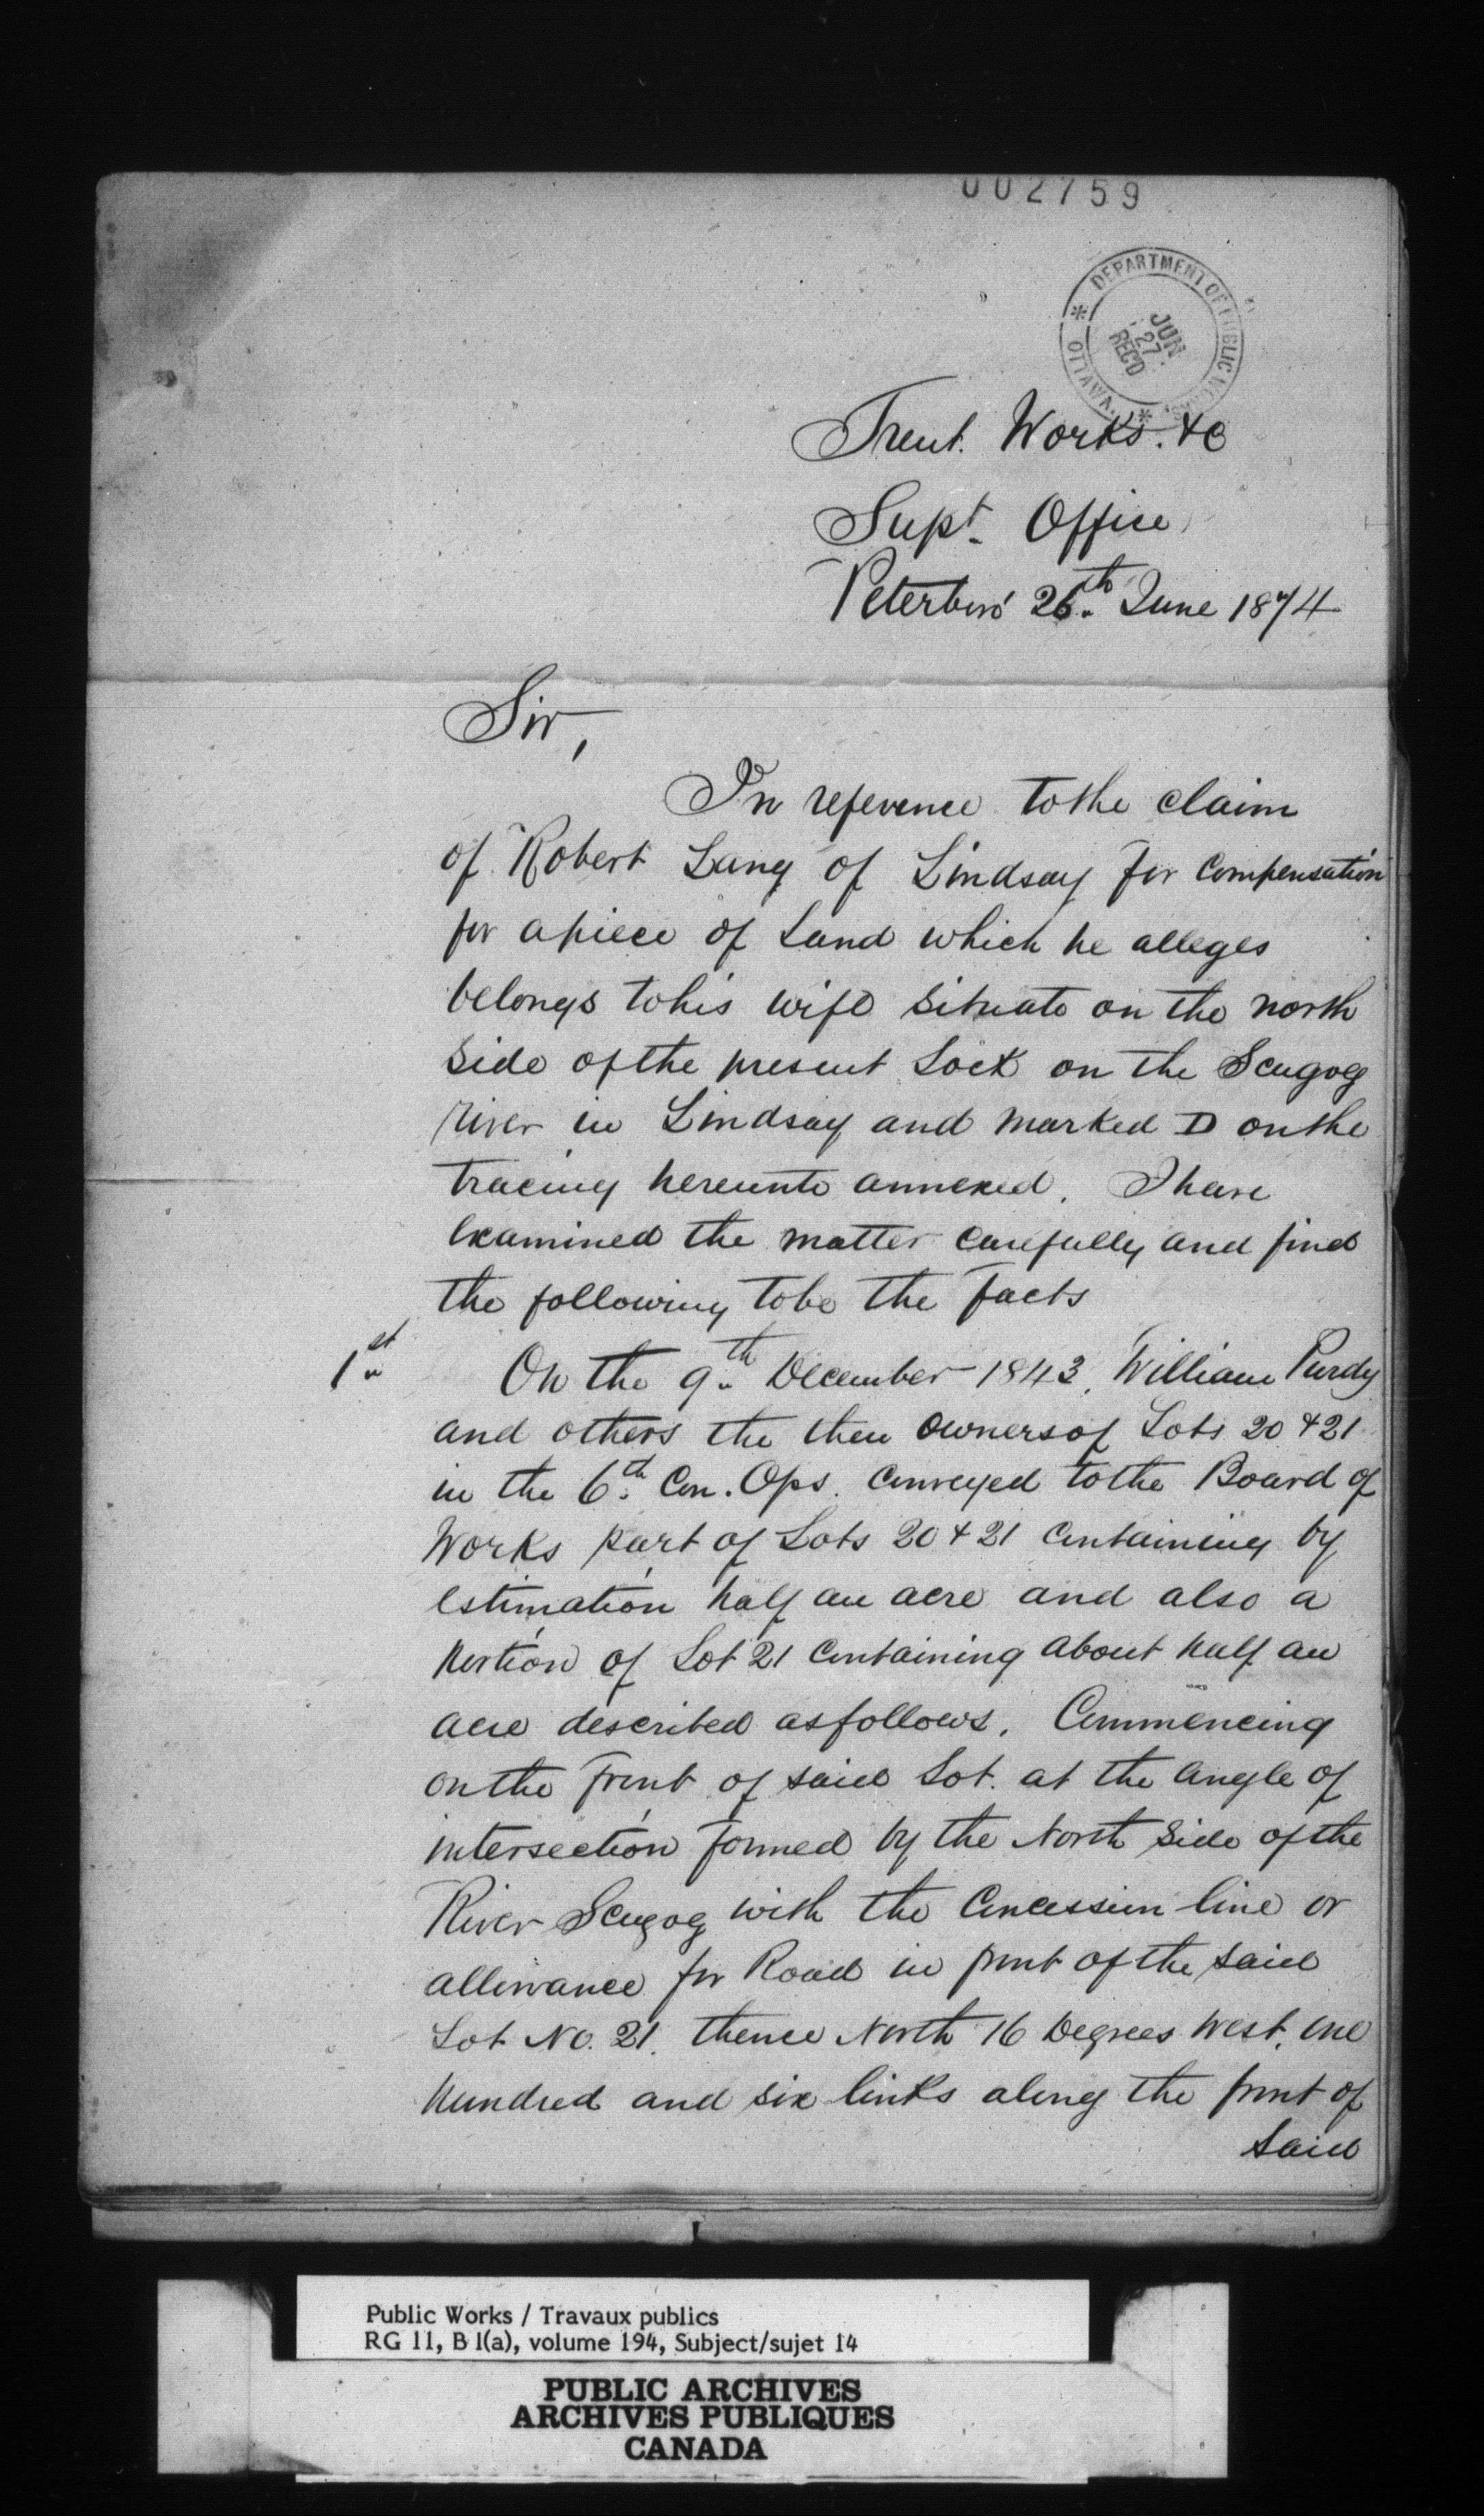 002759
DEPARTMENT OF PUBLIC WORKS. * OTTAWA. *
JUN
27
REC'D
Trent. Works. &c
Supt. Office
Peterboro' 26th June 1874
Sir,
In reference to the claim
of Robert Lang of Lindsay for Compensation
for a piece of Land which he alleges
belongs to his wife situate on the north
side of the present Lock on the Scugog
River in Lindsay and marked D on the
tracing hereunto annexed. I have
examined the matter carefully and find
the following to be the facts
1st On the 9th December 1843, William Purdy
and others the then owners of Lots 20 & 21
in the 6th Con. Ops. Conveyed to the Board of
Works part of Lots 20 & 21 Containing by
estimation half an acre and also a
portion of Lot 21 Containing about half an
acre described as follows. Commencing
on the front of said Lot. at the angle of
intersection formed by the North side of the
River Scugog with the Concession line or
allowance for Road in front of the said
Lot No. 21. thence North 16 Degrees West, one
hundred and six links along the front of
said
Public Works / Travaux publics
RG 11, B 1(a), volume 194, Subject/sujet 14
PUBLIC ARCHIVES
ARCHIVES PUBLIQUES
CANADA